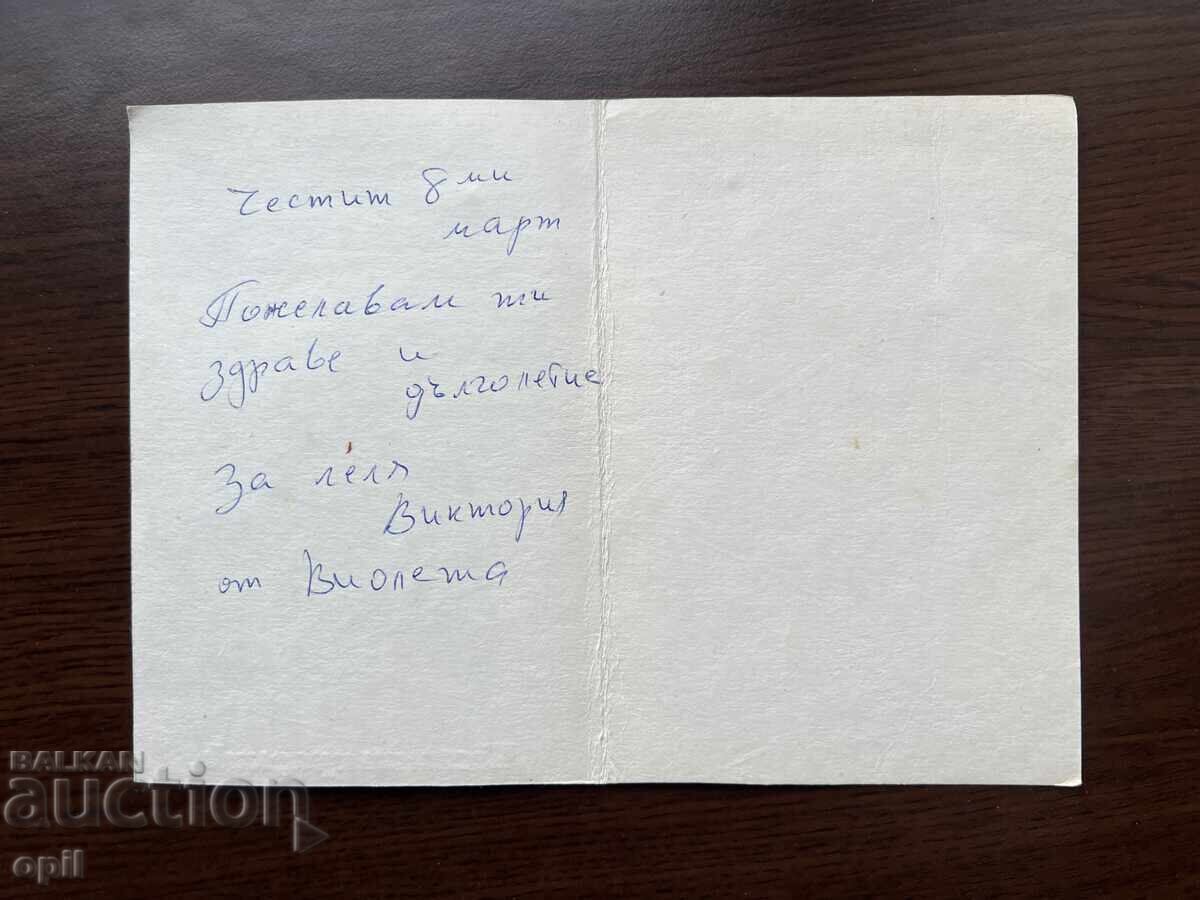 Честит 8ми
март
Пожелавам ти
здраве и
дълголетие
За леля
Виктория
от Виолета
BALKAN
auction
opil